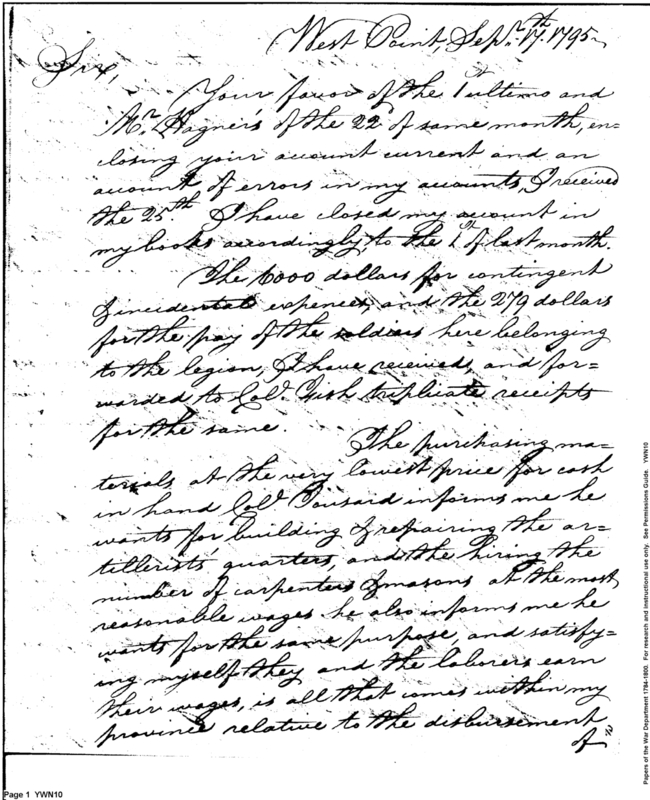 West Point, Sepr. 17th. 1795.
Sir,
Your favor of the 1st ultimo and
Mr. Hagner's of the 22d of same month, en=
closing your account current and an
account of errors in my accounts, I received
the 25th. I have closed my account in
my books accordingly to the 1st of last month.
The 6000 dollars for contingent
& incidental expences, and the 279 dollars
for the pay of the soldiers here belonging
to the legion, I have received, and for=
warded to Colo. Fish triplicate receipts
for the same.
The purchasing ma=
terials at the very lowest price for cash
in hand Colo. Tousard informs me he
wants for building & repairing the ar=
tillerists' quarters, and the hiring the
number of carpenters & masons at the most
reasonable wages he also informs me he
wants for the same purpose, and satisfy=
ing myself they and the laborers earn
their wages, is all that comes within my
province relative to the disbursement
of
Page 1 YWN10
Papers of the War Department 1784-1800. For research and instructional use only. See Permissions Guide. YWN10